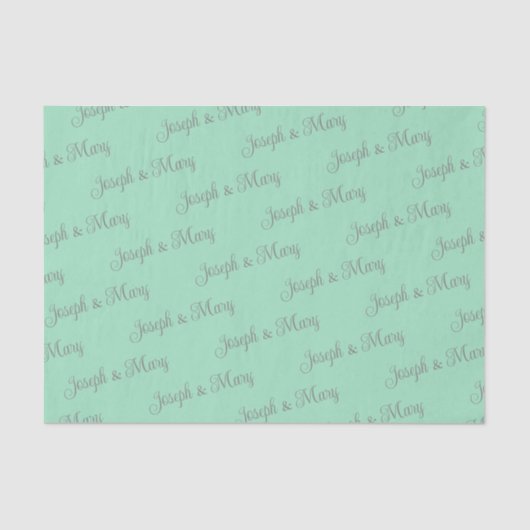 Joseph & Mary
Joseph & Mary
Joseph & Mary
Joseph & Mary
Joseph & Mary
Joseph & Mary
Joseph & Mary
Joseph & Mary
Joseph & Mary
Joseph & Mary
Joseph & Mary
Joseph & Mary
Joseph & Mary
Joseph & Mary
Joseph & Mary
Mary
Joseph & Mary
Joseph & Mary